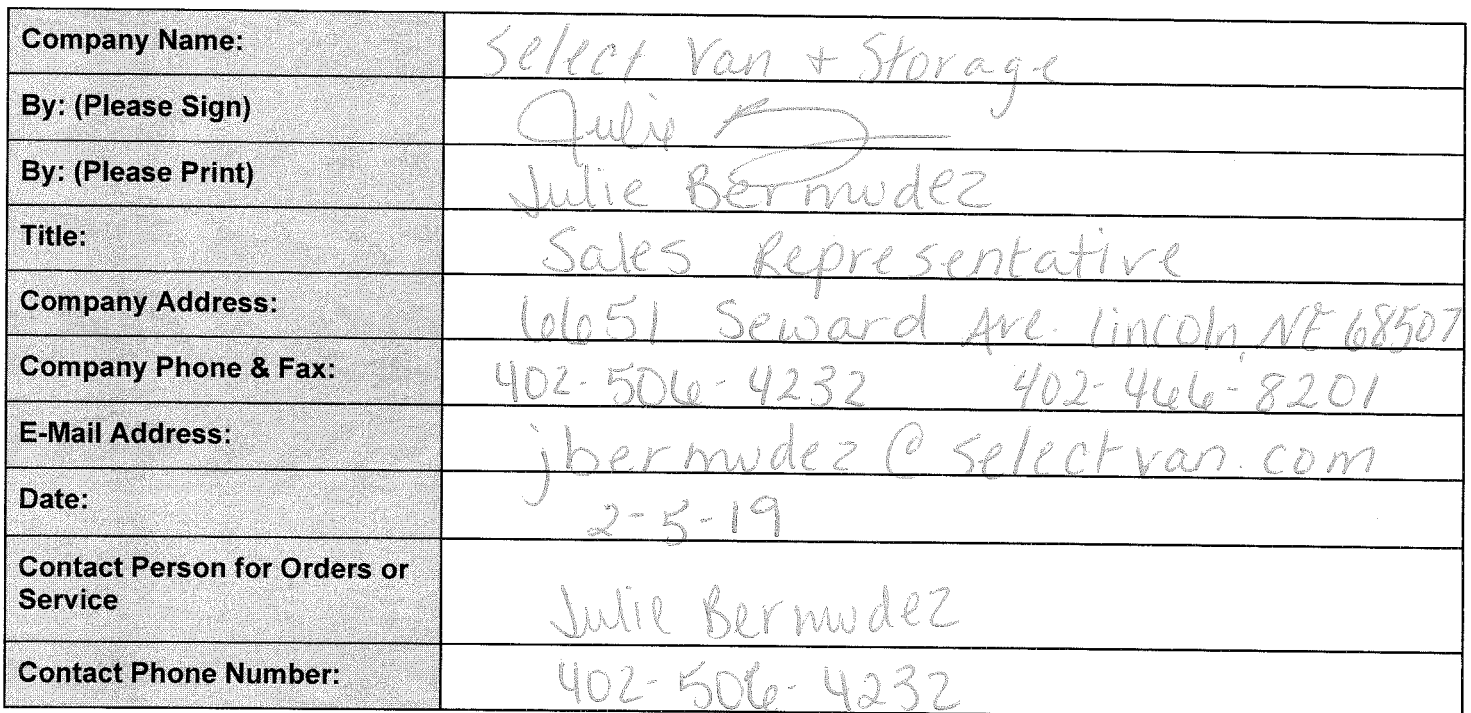 Company Name: Select Van + Storage
By: (Please Sign) Julie
By: (Please Print) Julie Bermudez
Title: Sales Representative
Company Address: 6651 Seward Ave. Lincoln, NE 68507
Company Phone & Fax: 402-506-4232 402-466-8201
E-Mail Address: jbermudez@selectvan.com
Date: 2-5-19
Contact Person for Orders or
Service Julie Bermudez
Contact Phone Number: 402-506-4232